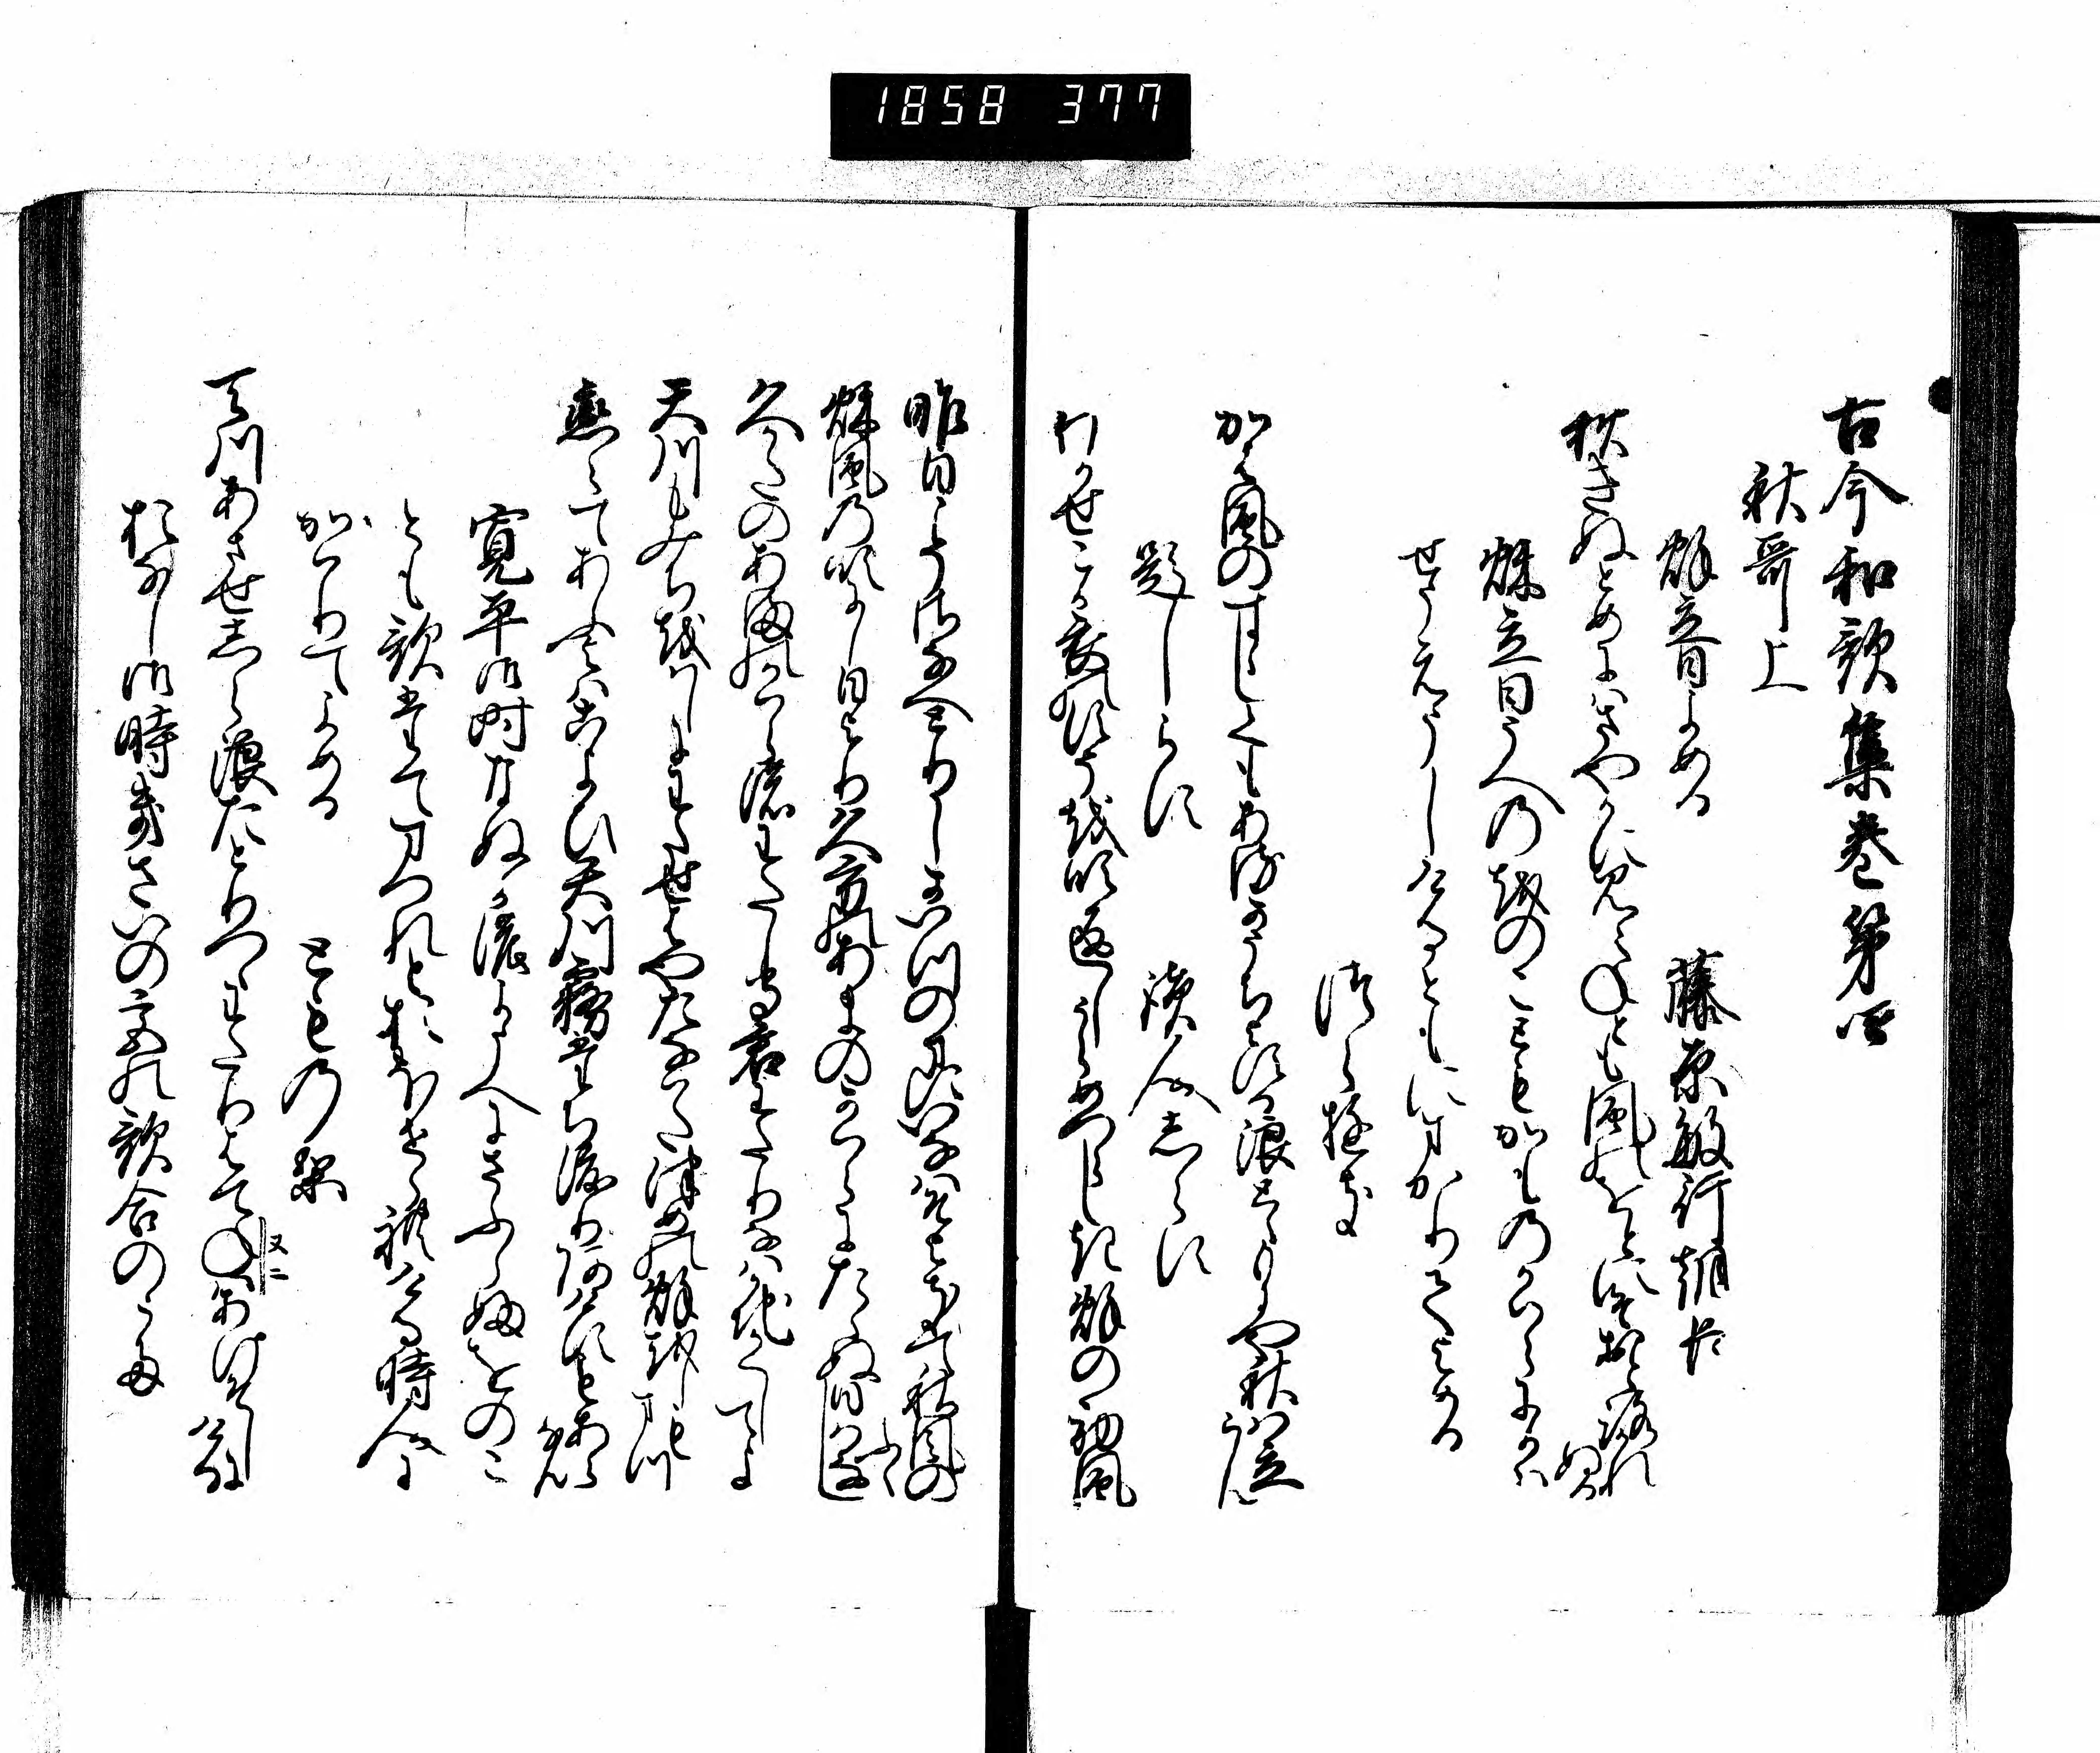 1858 377
古今和歌集巻第四
秋哥上
秋立日よめる
藤原敏行朝臣
秋きぬとめにはさやかに見えねとも風のをとにそおとろかれぬる
秋立日うへのをのこともかものかはらに
せうえうしけるともにまかりてよめる
つらゆき
かは風のすゝしくもあるかうちよする浪とゝもにや秋は立らん
題しらす
讀人しらす
わかせこか衣のすそを吹返しうらめつらしき秋の初風
昨日こそさなへとりしかいつのまにいなはそよきて秋風の
ふく
秋風の吹にし日より久方のあまのかはらにたゝぬ日はなし
久かたのあまのかはらの渡もり君わたりなはかちかくしてよ
天川もみちをはしにわたせはやたなはたつめの秋をしもまつ
恋〳〵てあふ夜はこよひ天川霧立ち渡りあけすもあらなん
寛平御時なぬかの夜うへにさふらふをのこ
とも歌たてまつれとおほせられける時人に
かはりてよめる
とものり
天川あさせしら浪たとりつゝわたりはてねはあけそしにける
又ニ
おなし御時きさいの宮の歌合のうた